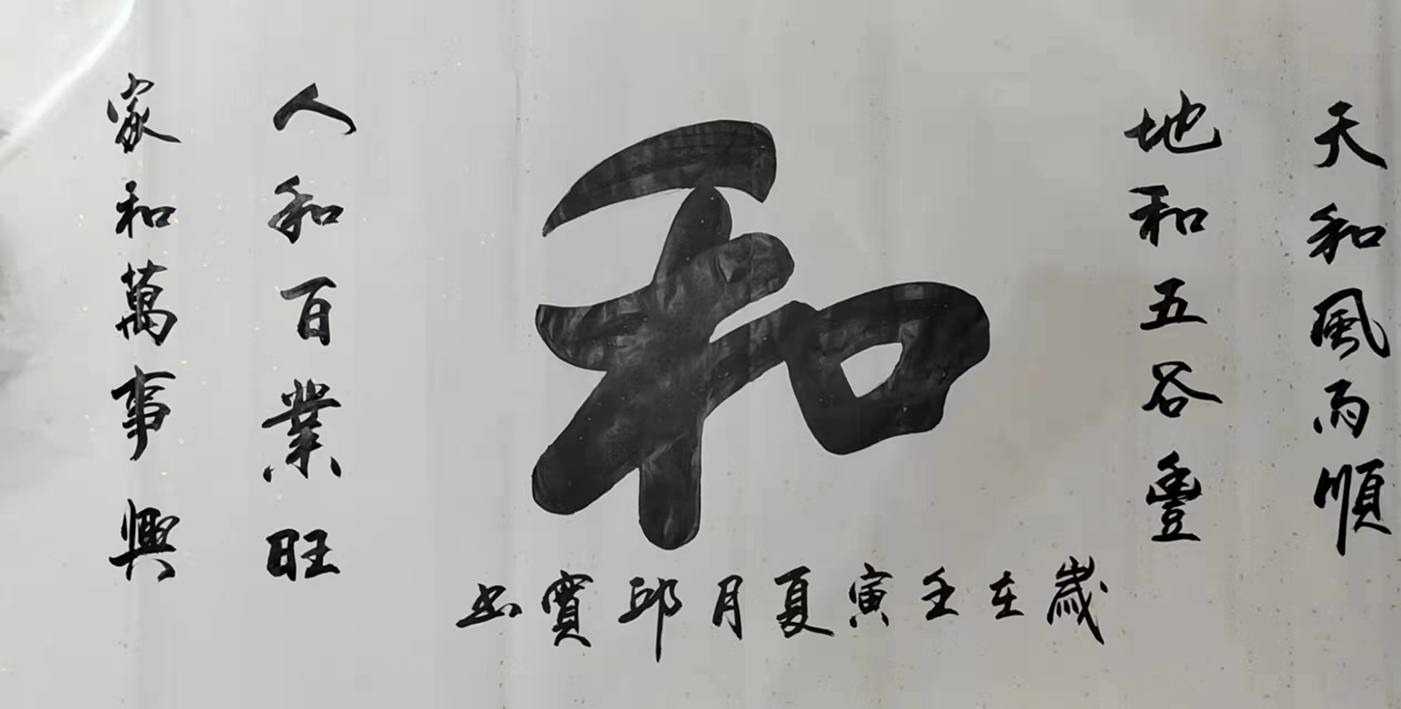 天和風雨順
地和五谷豐
和
歲在壬寅夏月邱實书
人和百業旺
家和萬事興